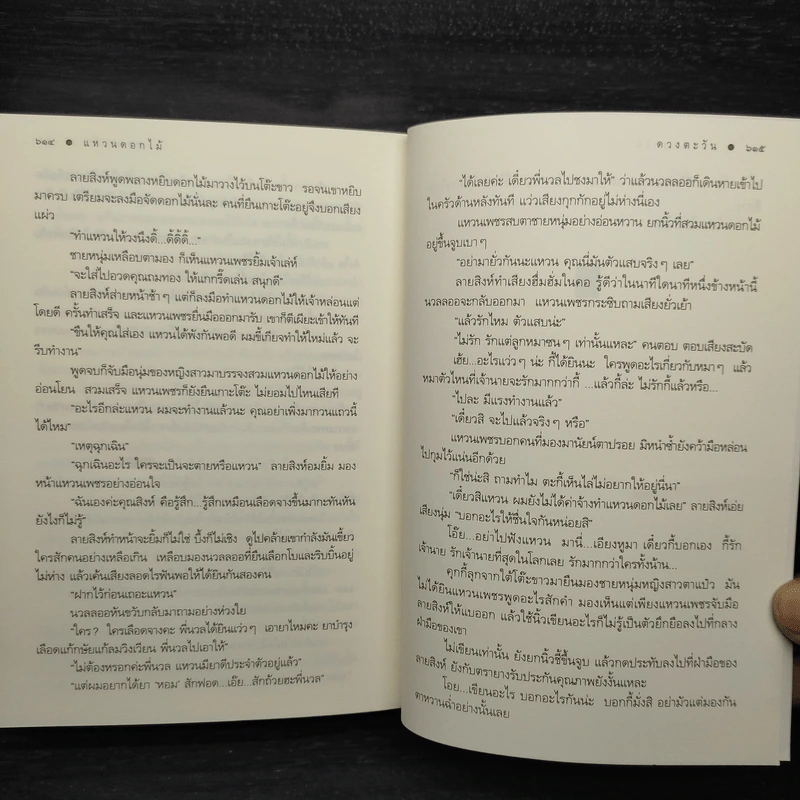 ๖๑๔ ● แหวนดอกไม้
ลายสิงห์พูดพลางหยิบดอกไม้มาวางไว้บนโต๊ะขาว รอจนเขาหยิบ
มาครบ เตรียมจะลงมือจัดดอกไม้นั่นละ คนที่ยืนเกาะโต๊ะอยู่จึงบอกเสียง
แผ่ว
"ทำแหวนให้วงนึงดิ๊...ดิ๊ดิ๊ดิ๊..."
ชายหนุ่มเหลือบตามอง ก็เห็นแหวนเพชรยิ้มเจ้าเล่ห์
"จะใส่ไปอวดคุณถมทอง ให้แกกรี๊ดเล่น สนุกดี"
ลายสิงห์ส่ายหน้าช้าๆ แต่ก็ลงมือทำแหวนดอกไม้ให้เจ้าหล่อนแต่
โดยดี ครั้นทำเสร็จ และแหวนเพชรยื่นมือออกมารับ เขาก็ตีเผียะเข้าให้ทันที
"ขืนให้คุณใส่เอง แหวนได้พังกันพอดี ผมขี้เกียจทำให้ใหม่แล้ว จะ
รีบทำงาน"
พูดจบก็จับมือนุ่มของหญิงสาวมาบรรจงสวมแหวนดอกไม้ให้อย่าง
อ่อนโยน สวมเสร็จ แหวนเพชรก็ยังยืนเกาะโต๊ะ ไม่ยอมไปไหนเสียที
"อะไรอีกล่ะแหวน ผมจะทำงานแล้วนะ คุณอย่าเพิ่งมากวนแถวนี้
ได้ไหม"
"เหตุฉุกเฉิน"
"ฉุกเฉินอะไร ใครจะเป็นจะตายหรือแหวน" ลายสิงห์อมยิ้ม มอง
หน้าแหวนเพชรอย่างอ่อนใจ
"ฉันเองค่ะคุณสิงห์ คือรู้สึก...รู้สึกเหมือนเลือดจางขึ้นมากะทันหัน
ยังไงก็ไม่รู้"
ลายสิงห์ทำหน้าจะยิ้มก็ไม่ใช่ บึ้งก็ไม่เชิง ดูไปคล้ายเขากำลังมันเขี้ยว
ใครสักคนอย่างเหลือเกิน เหลือบมองนวลลออที่ยืนเลือกโบและริบบิ้นอยู่
ไม่ห่าง แล้วเค้นเสียงลอดไรฟันพอให้ได้ยินกันสองคน
"ฝากไว้ก่อนเถอะแหวน"
นวลลออหันขวับกลับมาถามอย่างห่วงใย
"ใคร? ใครเลือดจางคะ พี่นวลได้ยินแว่วๆ เอายาไหมคะ ยาบำรุง
เลือดแก้กษัยแก้ลมวิงเวียน พี่นวลไปเอาให้"
"ไม่ต้องหรอกค่ะพี่นวล แหวนมียาดีประจำตัวอยู่แล้ว"
"แต่ผมอยากได้ยา 'หอม' สักฟอด...เอ๊ย...สักถ้วยฮะพี่นวล"
ดวงตะวัน ● ๖๑๕
"ได้เลยค่ะ เดี๋ยวพี่นวลไปชงมาให้" ว่าแล้วนวลลออก็เดินหายเข้าไป
ในครัวด้านหลังทันที แว่วเสียงกุกกักอยู่ไม่ห่างนี่เอง
แหวนเพชรสบตาชายหนุ่มอย่างอ่อนหวาน ยกนิ้วที่สวมแหวนดอกไม้
อยู่ขึ้นจูบเบาๆ
"อย่ามายั่วกันนะแหวน คุณนี่มันตัวแสบจริงๆ เลย"
ลายสิงห์ทำเสียงฮึ่มฮั่มในคอ รู้ดีว่าในนาทีใดนาทีหนึ่งข้างหน้านี้
นวลลออจะกลับออกมา แหวนเพชรกระซิบถามเสียงยั่วเย้า
"แล้วรักไหม ตัวแสบน่ะ"
"ไม่รัก รักแต่ลูกหมาซนๆ เท่านั้นแหละ" คนตอบ ตอบเสียงสะบัด
เฮ้ย...อะไรแว่วๆ น่ะ กี้ได้ยินนะ ใครพูดอะไรเกี่ยวกับหมาๆ แล้ว
หมาตัวไหนที่เจ้านายจะรักมากกว่ากี้ ...แล้วกี้ล่ะ ไม่รักกี้แล้วหรือ...
"ไปละ มีแรงทำงานแล้ว"
"เดี๋ยวสิ จะไปแล้วจริงๆ หรือ"
แหวนเพชรบอกคนที่มองมานัยน์ตาปรอย มิหนำซ้ำยังคว้ามือหล่อน
ไปกุมไว้แน่นอีกด้วย
"ก็ใช่น่ะสิ ถามทำไม ตะกี้เห็นไล่ไม่อยากให้อยู่นี่นา"
"เดี๋ยวสิแหวน ผมยังไม่ได้ค่าจ้างทำแหวนดอกไม้เลย" ลายสิงห์เอ่ย
เสียงนุ่ม "บอกอะไรให้ชื่นใจกันหน่อยสิ"
โอ๊ย...อย่าไปฟังแหวน มานี่...เอียงหูมา เดี๋ยวกี้บอกเอง กี้รัก
เจ้านาย รักเจ้านายที่สุดในโลกเลย รักมากกว่าใครทั้งนั้น...
คุกกี้ลุกจากใต้โต๊ะขาวมายืนมองชายหนุ่มหญิงสาวตาแป๋ว มัน
ไม่ได้ยินแหวนเพชรพูดอะไรสักคำ มองเห็นแต่เพียงแหวนเพชรจับมือ
ลายสิงห์ให้แบออก แล้วใช้นิ้วเขียนอะไรก็ไม่รู้เป็นตัวยึกยือลงไปที่กลาง
ฝ่ามือของเขา
ไม่เขียนเท่านั้น ยังยกนิ้วชี้ขึ้นจูบ แล้วกดประทับลงไปที่ฝ่ามือของ
ลายสิงห์ ยังกับตรายางรับประกันคุณภาพยังงั้นแหละ
โอย...เขียนอะไร บอกอะไรกันน่ะ บอกกี้มั่งสิ อย่ามัวแต่มองกัน
ตาหวานฉ่ำอย่างนั้นเลย